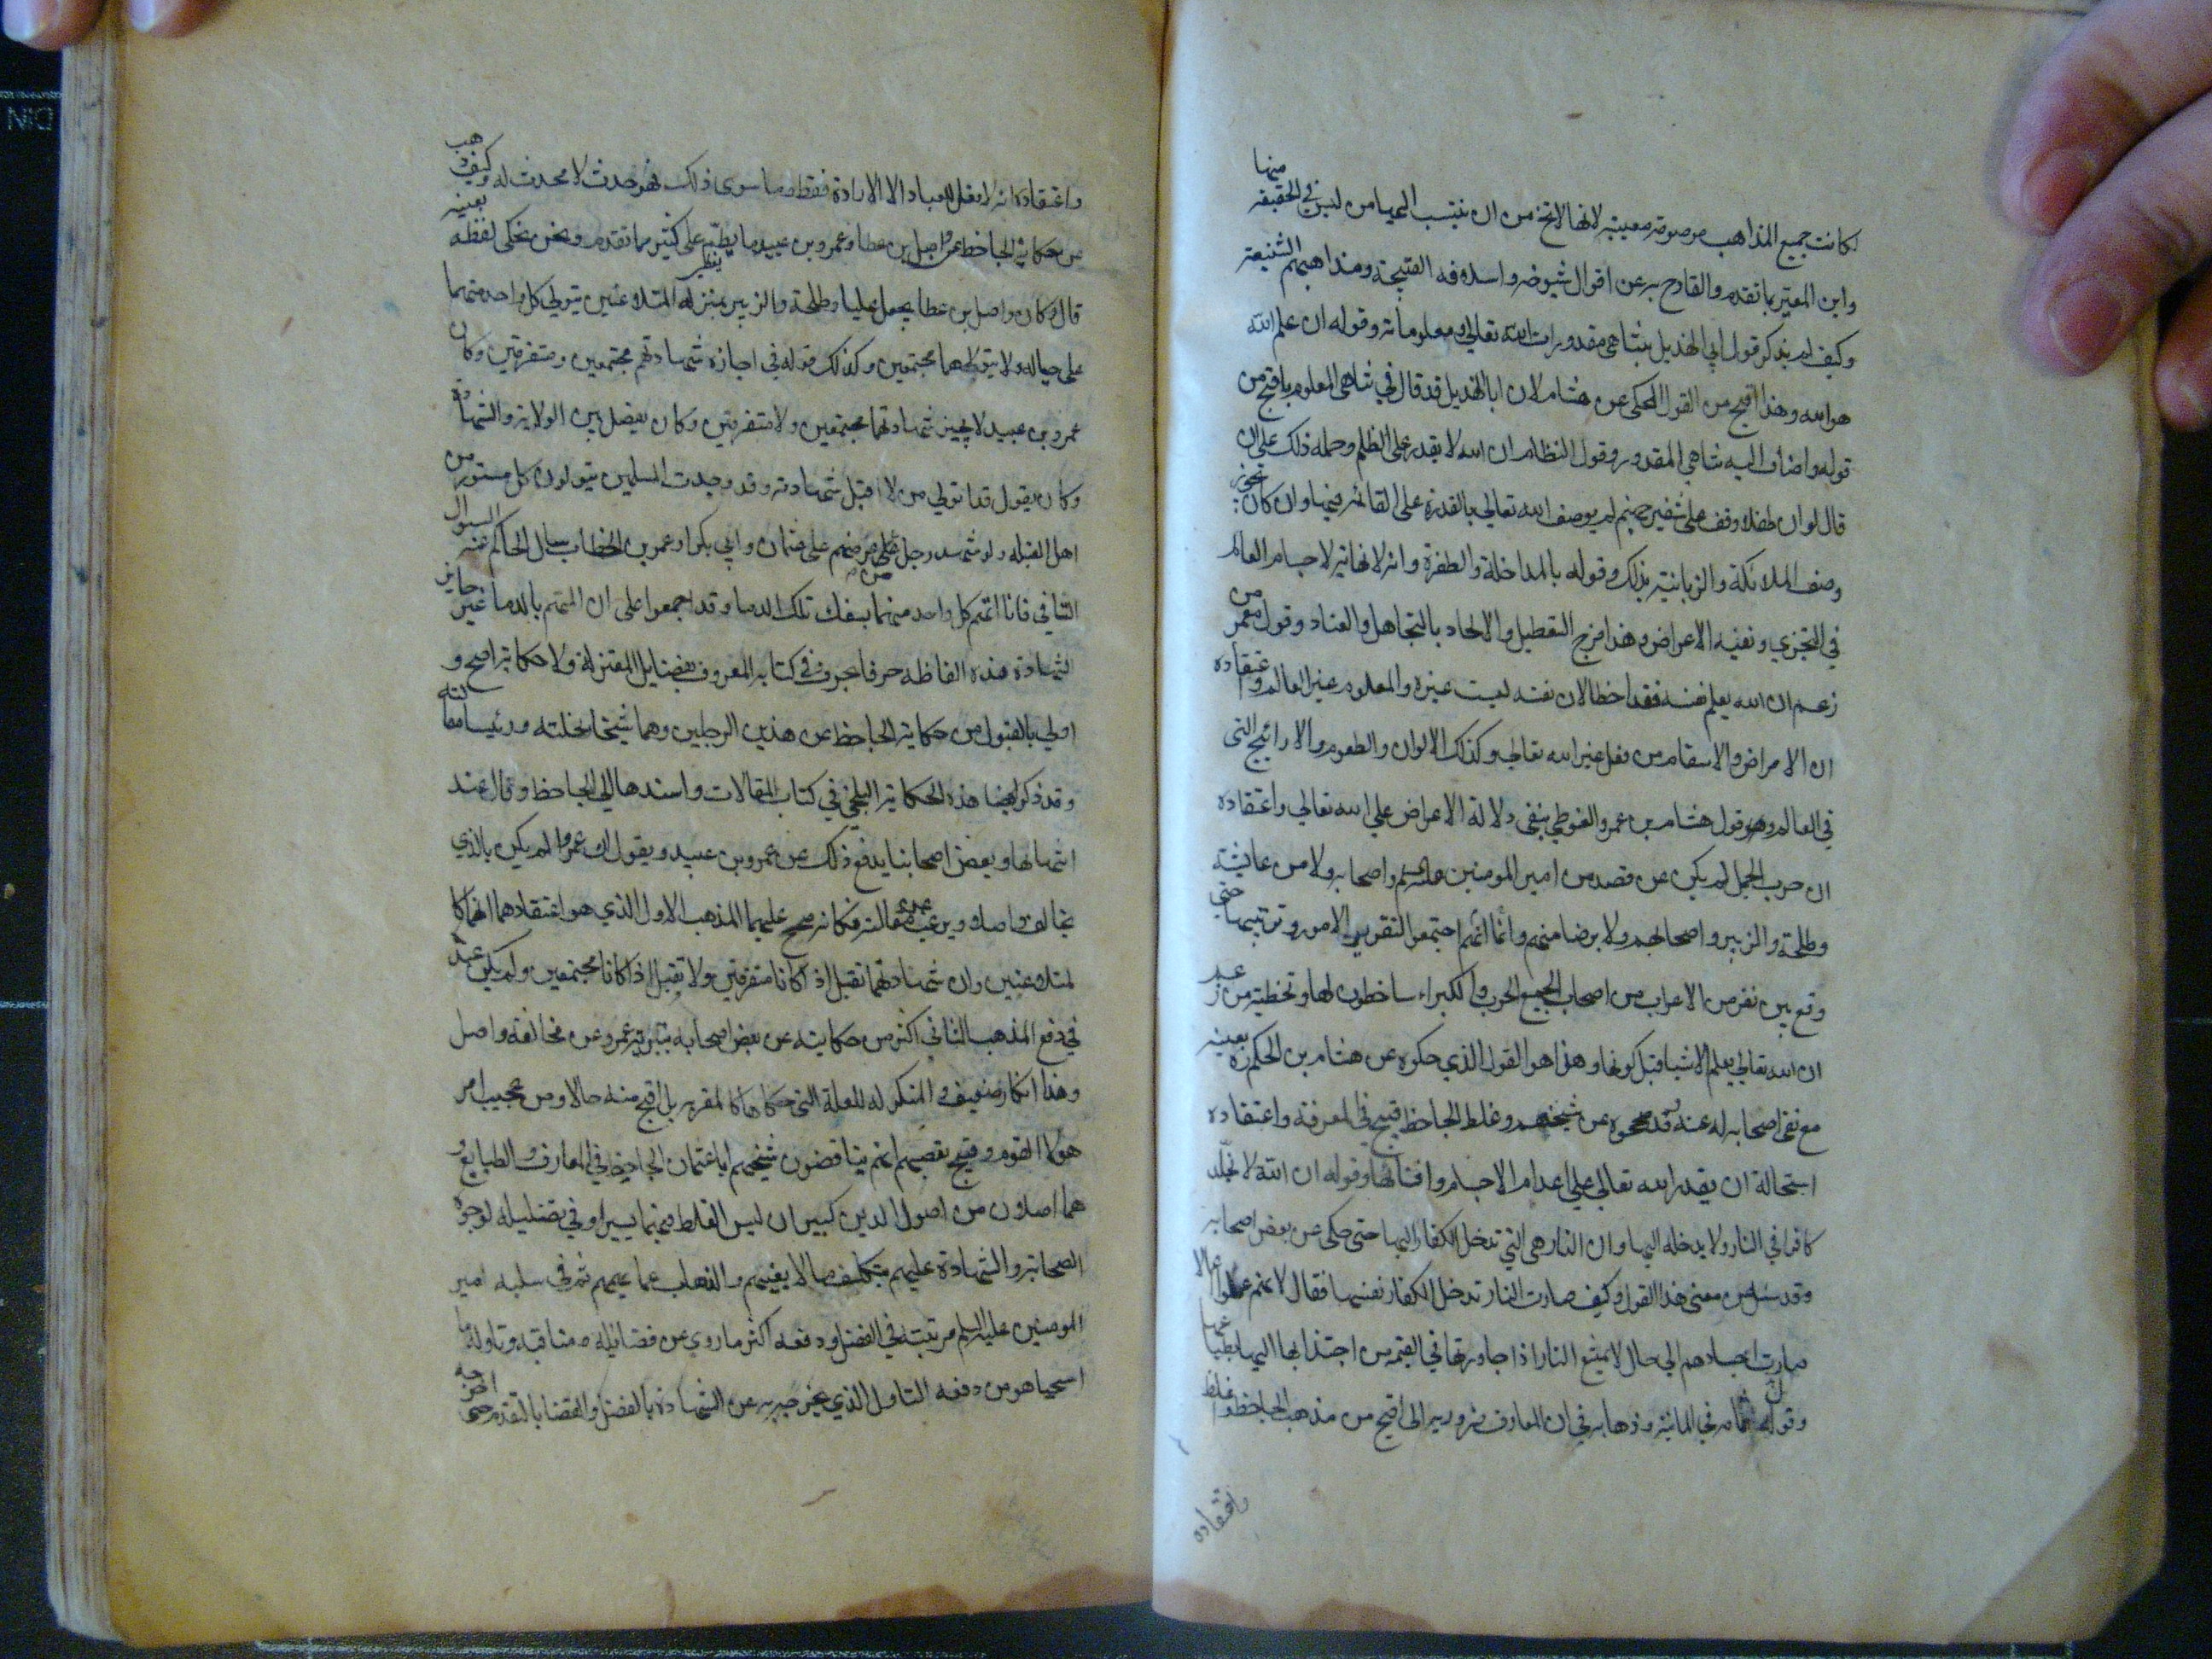 لكانت جميع المذاهب مرصوصة معيبة لانها لا تخ من ان ينتسب اليها من ليس في الحقيقة منها
وابن المعتبر بما تقدم والقادح به عن اقوال شيوخه واسلافه القبيحة ومذاهبهم الشنيعة
وكيف لم يذكر قول ابي الهذيل بتناهي مقدورات الله تعالي ومعلوماته وقوله ان علم الله
هو الله وهذا اقبح من القول المحكى عن هشام لان ابا الهذيل قد قال في تناهي المعلوم باقبح من
قوله واضاف اليه تناهي المقدور وقول النظام ان الله لا يقدر على الظلم وحمله ذلك على ان
قال لو ان طفلا وقف على شفير جهنم لم يوصف الله تعالي بالقدرة على القائه فيها وان كان تجوز
وصف الملائكة والزبانية بذلك وقوله بالمداخلة والطفرة وانه لا نهاية لاجسام العالم
في التجزي ونفيه الاعراض وهذا مزج التعطيل والالحاد بالتجاهل والعناد وقول معمر من
زعم ان الله يعلم نفسه فقد اخطا لان نفسه ليست غيره والمعلوم غير العالم واعتقاده
ان الامراض والاسقام من فعل غير الله تعالي وكذلك الالوان والطعوم والارائيح التي
في العالم وهو قول هشام بن عمرو الفوطي بنفى دلالة الاعراض علي الله تعالي واعتقاده
ان حرب الجمل لم يكن عن قصد من امير المومنين عليه السلم واصحابه ولا من عايشة
وطلحة والزبير واصحابهم ولا برضا منهم وانما انهم اجتمعوا لتقرير الامور وترتيبها حتي
وقع بين نفر من الاعراب من اصحاب الجميع الحرب والكبراء ساخطون لها وتخطيته من زعم
ان الله تعالي يعلم الاشيا قبل كونها وهذا هو القول الذي حكوه عن هشام بن الحكم ره بعينه
مع نفى اصحابه له عنه قد صححوه عن شيخهم وغلط الجاحظ قبيح في المعرفة واعتقاده
استحالة ان يقدر الله تعالي علي اعدام الاجسام وافنائها وقوله ان الله لا يخلد
كافرا في النار ولا يدخله اليها وان النار هي التي تدخل الكفار اليها حتى حكى عن بعض اصحابه
وقد سئل عن معنى هذا القول وكيف صارت النار تدخل الكفار نفسها فقال لانهم عملوا اعمالا
صارت اجسادهم الي حال لا تمتنع النار اذا جاورتها في القيمة من اجتذابها اليها بطباعها
وقول ثمامه في المائية وذهابه في ان المعارف ضرورية الى اقبح من مذهب الجاحظ وغلط
واعتقاده
واعتقاده انه لا فعل للعباد الا الارادة فقط وما سوى ذلك فهو حدث لا محدث له وكيف ذهب
عن حكاية الجاحظ عن واصل بن عطا وعمرو بن عبيد ما يطبّر على كثير مما تقدم ونحن نحكى لفظه بعينه
قال وكان واصل بن عطا يجعل عليا وطلحة والزبير بمنزلة المتلاعنين يتولي كل واحد منهما
على حياله ولا يتولاهما مجتمعين وكذلك قوله في اجازة شهادتهم مجتمعين ومتفرقين وكان
عمرو بن عبيد لا يجيز شهادتهما مجتمعين ولا متفرقين وكان يفصل بين الولاية والشهادة
وكان يقول قد اتولي من لا اقبل شهادته وقد وجدت المسلمين يتولون كل مستور من
اهل القبلة ولو شهد رجل من عرضهم على عثمان وابي بكر او عمر بن الخطاب سال الحاكم عنه السوال
الشافي فانا اتهم كل واحد منهما بسفك تلك الدما وقد اجمعوا على ان المتهم بالدما غير جايز
الشهادة هذه الفاظه حرفا بحرف في كتابه المعروف بفضايل المعتزلة ولا حكاية اصح و
اولي بالقبول من حكاية الجاحظ عن هذين الرجلين وهما شيخا نحلته ورئيسا مقالته
وقد ذكر ايضا هذه الحكاية البلخي في كتاب المقالات واسندها الي الجاحظ وقال عند
انتهائها وبعض اصحابنا يدفع ذلك عن عمرو بن عبيد ويقول ان عمروا لم يكن بالذي
يخالف واصلا ويرغب عن مقالته فكانه صحح عليهما المذهب الاول الذي هو اعتقادهما انهما كا
لمتلاعنين وان شهادتهما تقبل اذا كانا متفرقين ولا تقبل اذا كانا مجتمعين ولم يكن عنده
في دفع المذهب الثاني اكثر من حكايته عن بعض اصحابه بتبرية عمرو عن مخالفة واصل
وهذا انكار ضعيف والمنكر له للعلة التي حكاها كالمقر به بل اقبح منه حالا ومن عجيب امر
هؤلا القوم وقبيح تعصبهم انهم يناقضون شيخهم ابا عثمان الجاحظ في المعارف والطبايع و
هما اصلان من اصول الدين كبيران ليس الغلط فيهما يسيرا وفي تضليله لوجوه
الصحابة والشهادة عليهم بتكلف ما لا يعنيهم والذهاب عما عليهم ثم في سلبه امير
المومنين عليه السلم مرتبته في الفضل ودفعه اكثر ما روي عن فضائله ومناقبه وتاوله ما
استحيا هو من دفعه التاول الذي يخرجه به عن الشهادة بالفضل والقضا بالتقدم حتى اخرجه